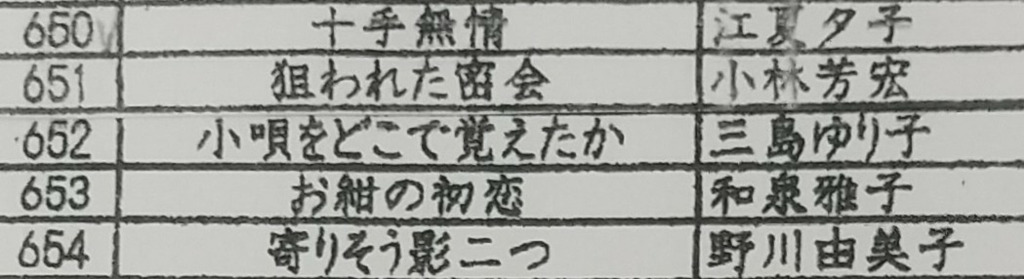 650 十手無情 江夏夕子
651 狙われた密会 小林芳宏
652 小唄をどこで覚えたか 三島ゆり子
653 お紺の初恋 和泉雅子
654 寄りそう影二つ 野川由美子